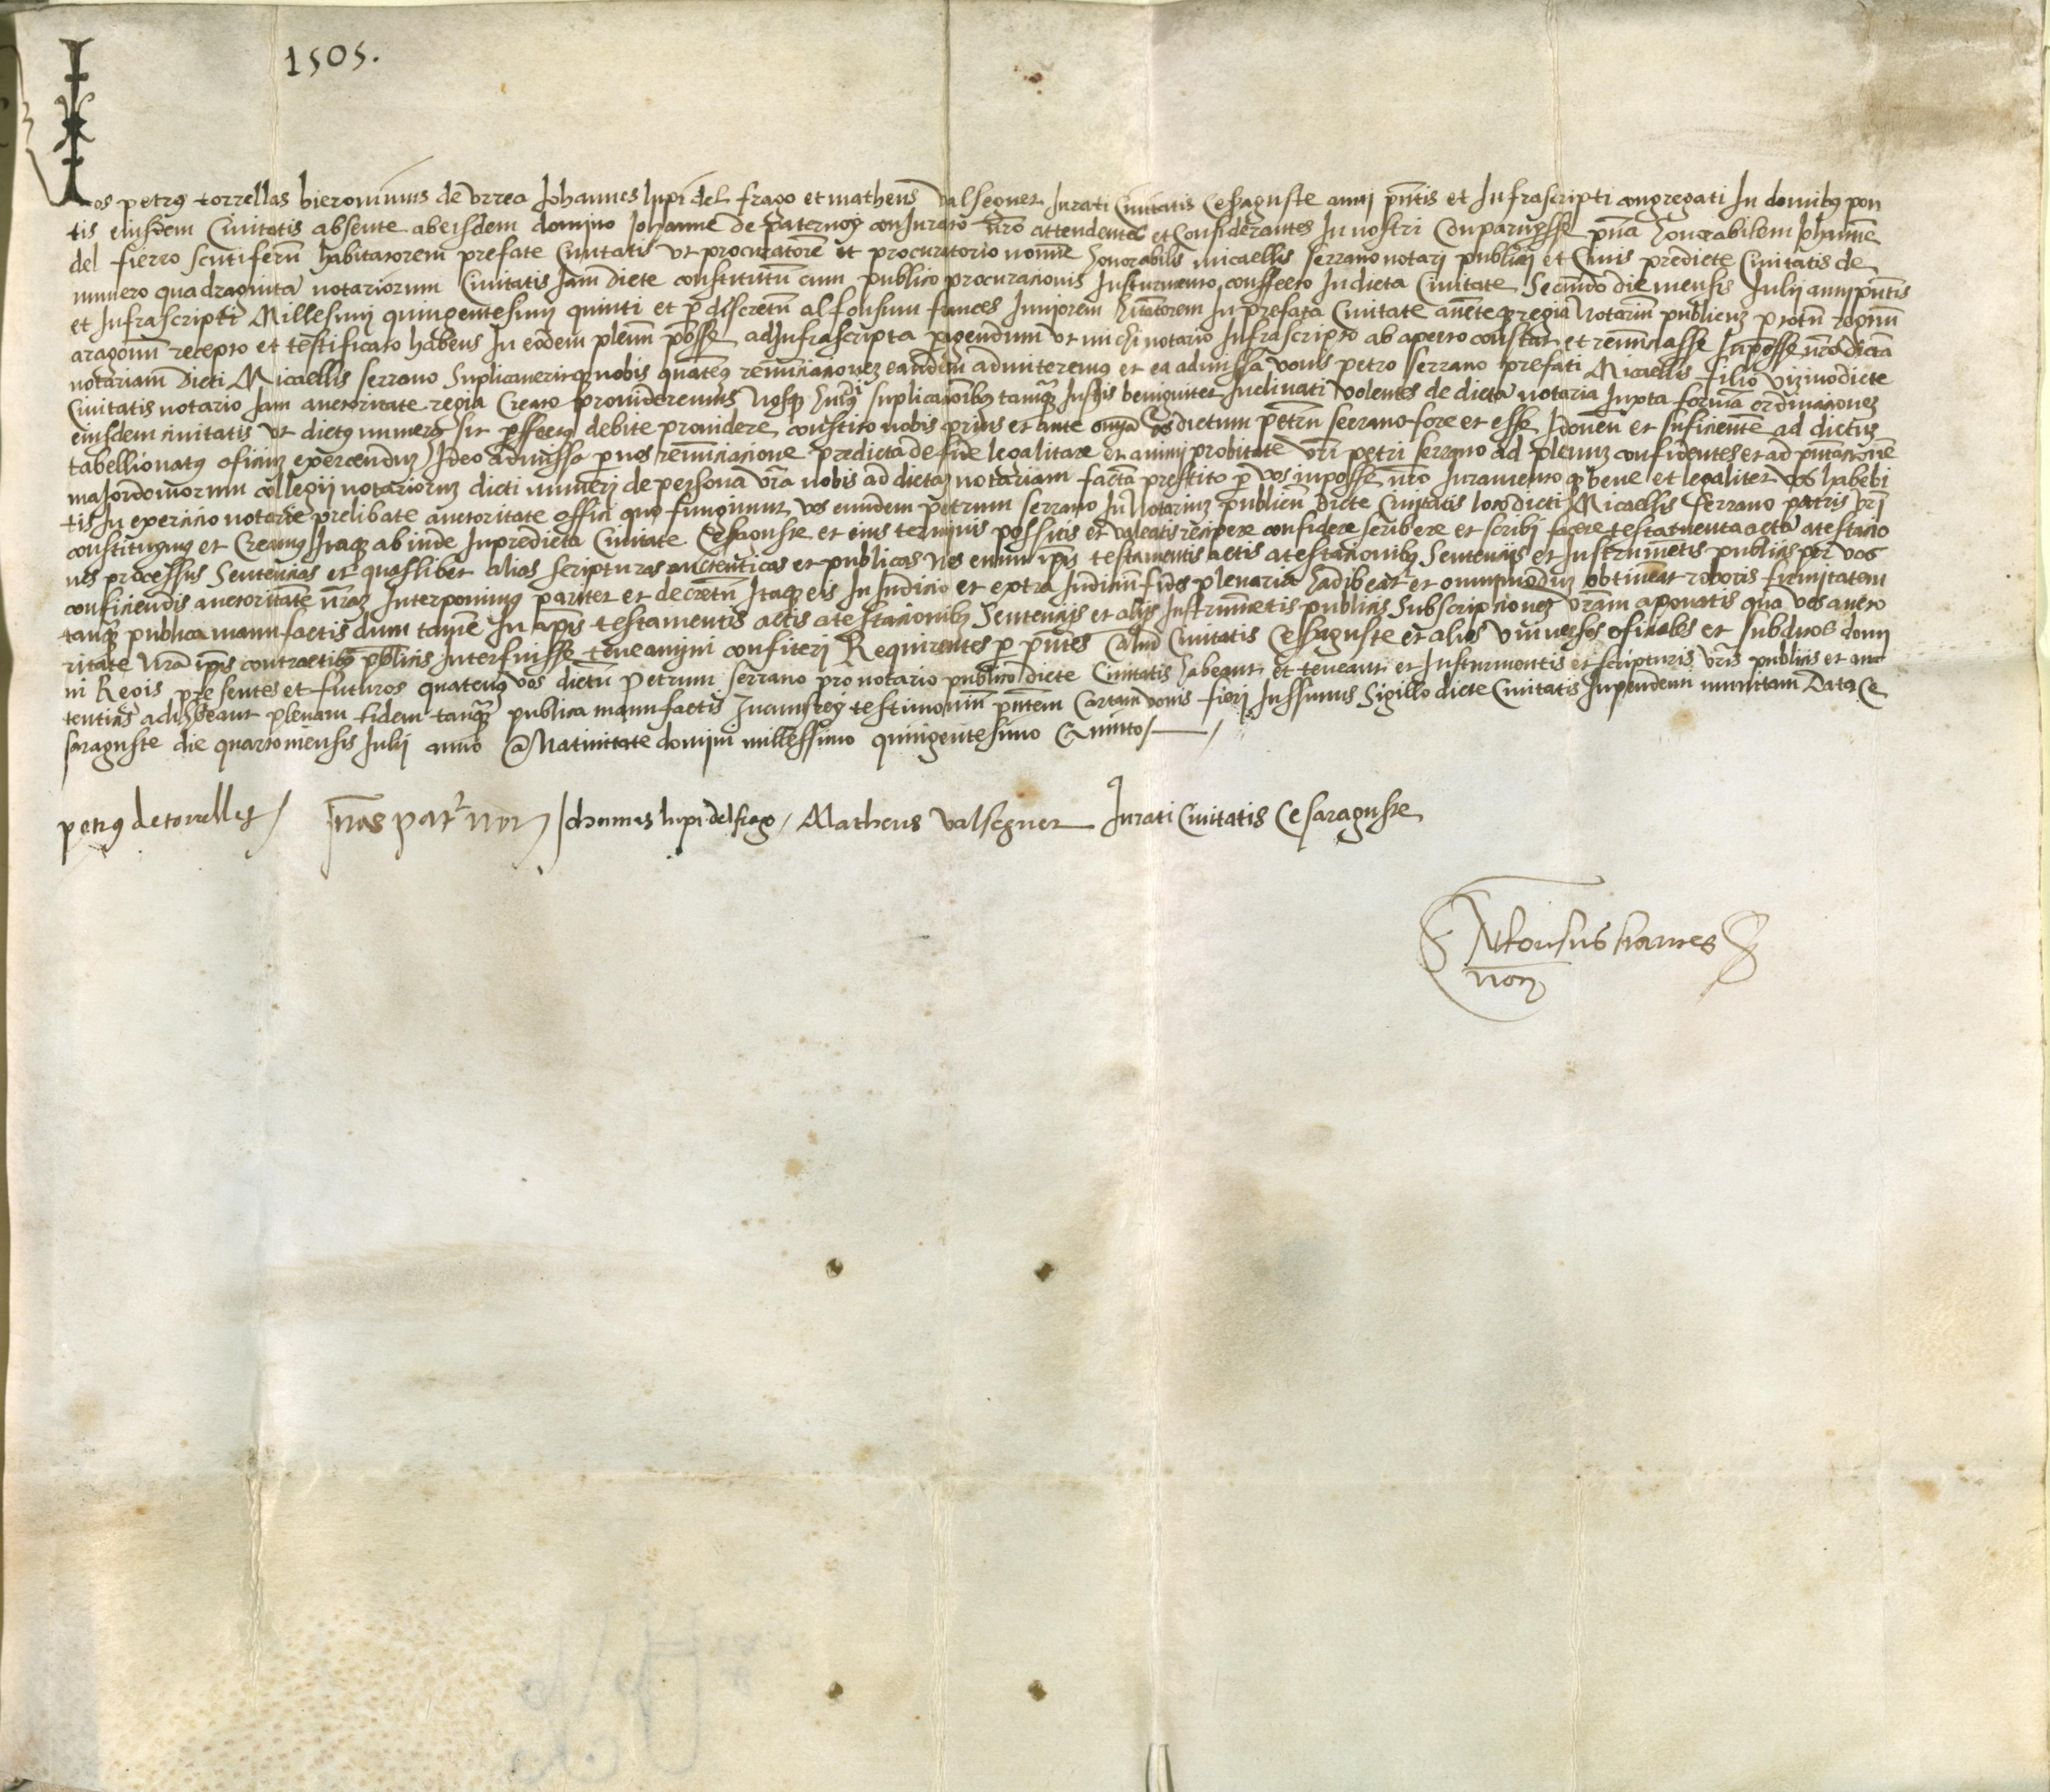 1505.
Nos petrus torrellas hieronimus de vrrea Johannes lupi del frago et matheus dalseguer Jurati Ciuitatis Cesaraguste anni pntis et Infrascripti congregati In domibus pon
tis eiusdem Ciuitatis absente ab eisdem domino Johanne de paternoy conJurato nro attendentes et Considerantes In nostri Conparuysse pnia honorabilem Johannem
del fierro scutiferum habitatorem prefate Ciuitatis vt procuratorem et procuratorio nomine honorabilis micaellis serrano notarij publici et Ciuis predicte Ciuitatis de
numero quadraginta notariorum Ciuitatis Jam dicte constitutum cum publico procuracionis Insturmento conffecto In dicta Ciuitate Secundo die mensis Julij anni pntis
et Infrascripti Millesimi quingentesimi quinti et p discretum alfonsum frances Juniorem hitatorem In prefata Ciuitate aucteqz regia Notarium publicuz p totum regnum
aragonum recepto et testificato habens In eodem plenum posse ad Infrascripta pagendum vt michi notario Infrascripto ab aperto constat et renunciasse In posse nro dictam
notariam dicti Micaellis serrano Suplicaueritqz nobis quatenus renunciacionez eandem admiteremus et ea admissa vobis petro serrano prefati Micaellis filio vizino dicte
Ciuitatis notario Jam auctoritate regia Creato prouideremus Nosqz hmoi suplicacionibus tamquam Justis beniguiter Inclinati volentes de dicta notaria Juxta formam ordinacionez
eiusdem ciuitatis vt dictus numerus sit pffectus debite prouidere constito nobis prius et ante omnia vos dictum petrum serrano fore et esse Idoneum et suficientem ad dictuz
tabellionatus oficiuz exercenduz Ideo admissa p nos renunciacione predicta de fide legalitate et animi probitate vri petri serrano ad plenuz confidentes et ad pntacionem
maJordomorum collegij notarioruz dicti numeri de persona vra nobis ad dictaz notariam facta prestito p vos in posse nro Juramento qz bene et legaliter vos habebi
tis In exercicio notarie prelibate auctoritate offici quo fungimur vos eumdem petrum serrano In Notariuz publicum dicte Ciuitatis loco dicti Micaellis serrano patris vri
constituymus et Creamus Itaqz ab inde In predicta Ciuitate Cesaraguste et eius terminis possitis et valeatis recipere confidere scribere et scribi facere testamenta acta atestacio
nes processus Sentencias et quaslibet alias scripturas auctenticas et publicas Nos enim ipis testamentis actis atestacionibus Sentencijs et Instrumetis publicis per vos
conficiendis auctoritatem nraz Interponimus pariter et decretum Itaqz eis In Judicio et extra Judicium fides plenaria hadibeatur et omnimoduz obtineat roboris firmitatem
tanquam publica manu factis dum tamen In ipis testamentis actis atestacionibus Sentencijs et alijs Instrumetis publicis Subscripcionez vram aponatis qua vos aucto
ritate nra ipis contractibus publicis Interfuisse teneamini confiteri Requirentes p pntes Calmed Ciuitatis Cesaraguste et alios vniuersos oficiales et subditos domi
ni Regis presentes et futuros quatenus vos dictum Petrum serrano pro notario publico dicte Ciuitatis habeant et teneant et Insturmentis et scripturis vris publicis et auc
tenticis adhibeant plenam fidem tanquam publica manu factis In cuius rey testimonium pntem Cartam vobis fieri Jussimus Sigillo dicte Ciuitatis Inpendenti munitam Data Ce
saraguste die quarto mensis Julij anno a Natiuitate domini millessimo quingentesimo Quinto
petrus de torrellas Johannes lupi del frago Matheus valseguer Jurati Ciuitatis Cesaraguste
Alfonsus frances
not